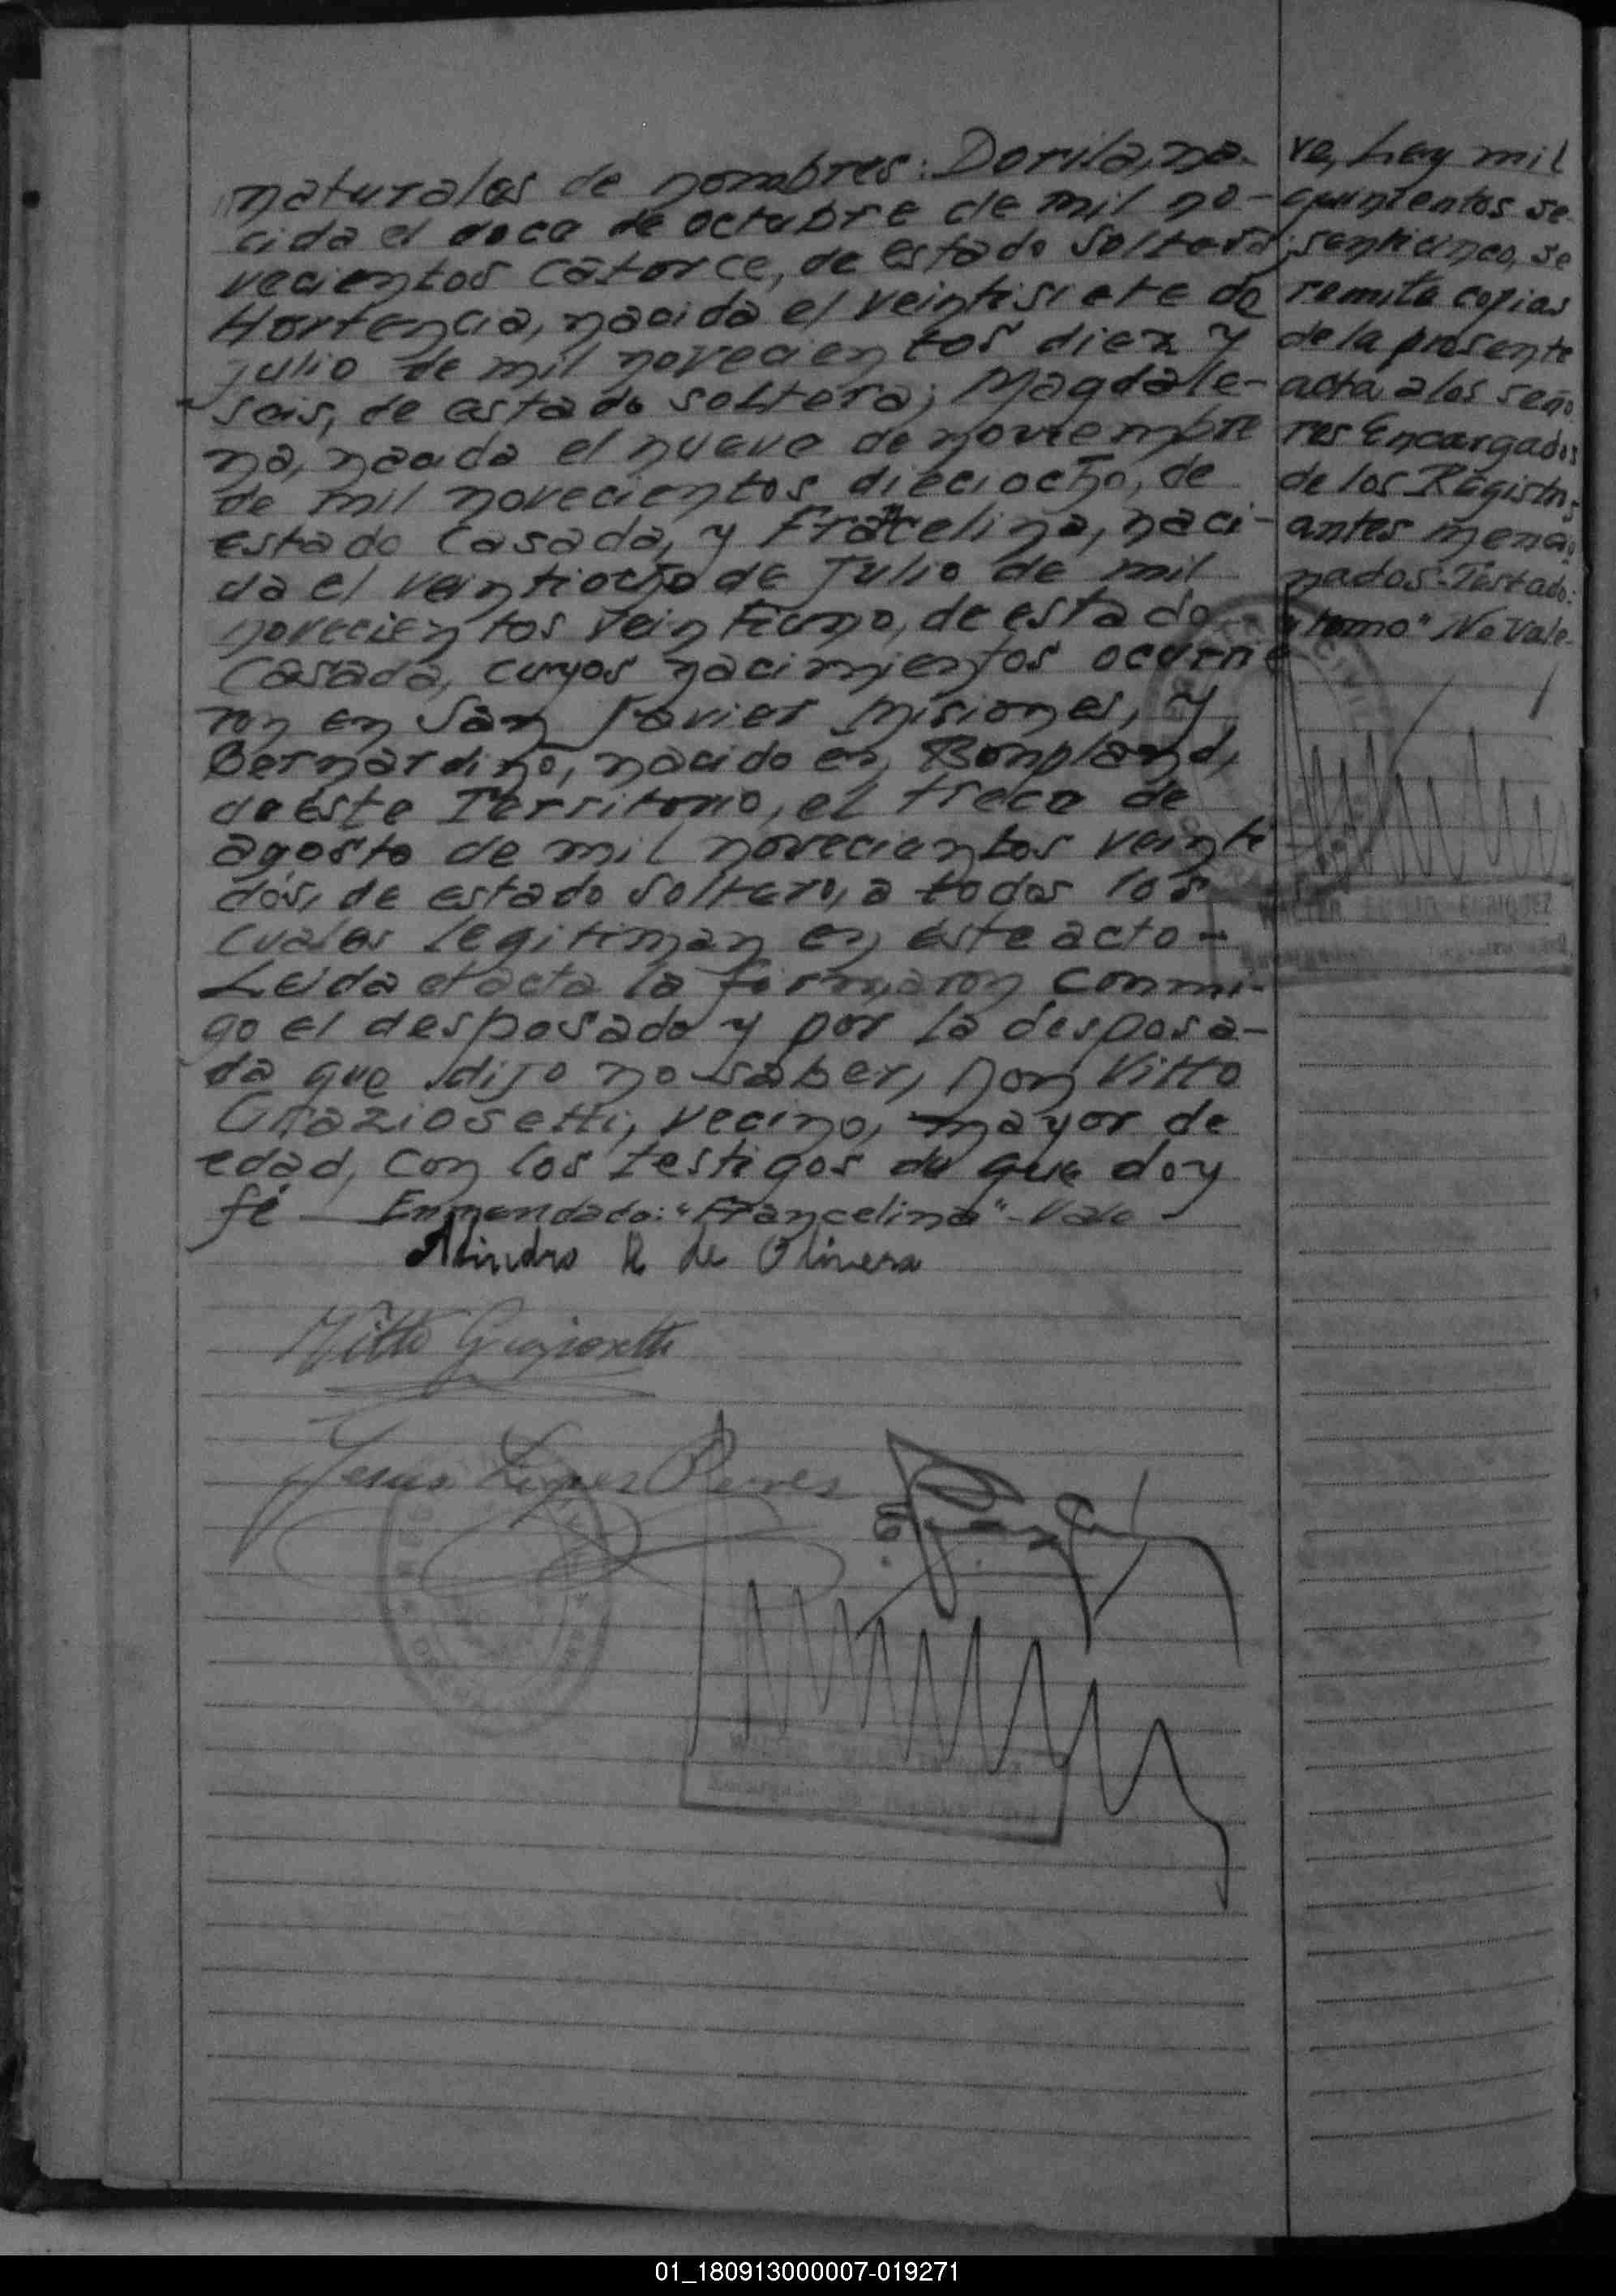 naturales de nombres: Dorila, na-
cida el doce de octubre de mil no-
vecientos catorce, de estado soltera;
Hortencia, nacida el veintisiete de
julio de mil novecientos diez y
seis, de estado soltera; Magdale-
na, nacida el nueve de noviembre
de mil novecientos dieciocho, de
estado casada, y Francelina, naci-
da el veintiocho de Julio de mil
novecientos veintiuno, de estado
casada, cuyos nacimientos ocurrie
ron en San Javier Misiones, y
Bernardino, nacido en Bonpland,
de éste Territorio, el trece de
agosto de mil novecientos veinti
dós, de estado soltero, a todos los
cuales legitiman en éste acto -
Leida el acta la firmaron conmi-
go el desposado y por la desposa-
da que dijo no saber, Don Vitto
Graziosetti, vecino, mayor de
edad, con los testigos de que doy
fé - Enmendado: "Francelina" - Vale -
Alindro R de Olivera
Vitto Graziosetti
Jesus Lopez Perez
ve, Ley mil
quinientos se-
senticinco, se
remite copias
de la presente
acta a los seño
res Encargados
de los Registros
antes mencio
nados - Testado:
"tomo" No Vale -
WALTER EMILIO ENRIQUEZ